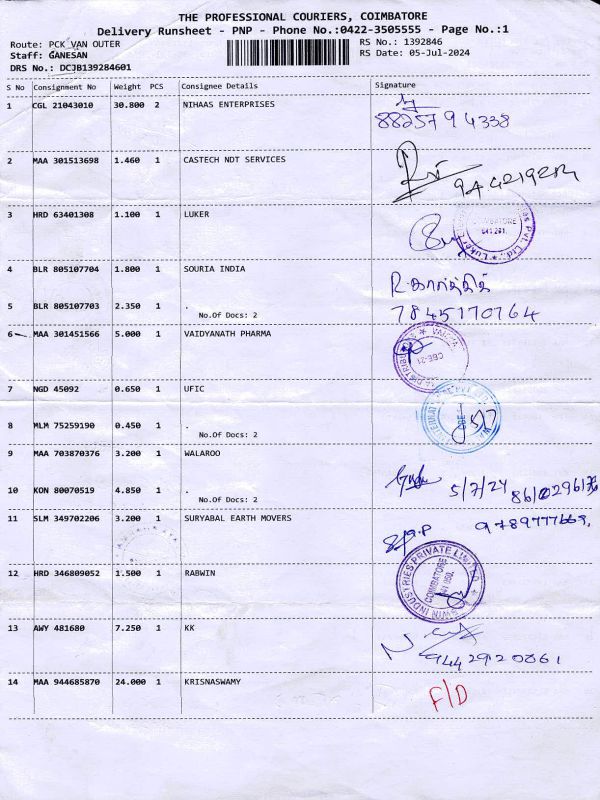 THE PROFESSIONAL COURIERS, COIMBATORE
Delivery Runsheet - PNP - Phone No.:0422-3505555 - Page No.:1
Route: PCK VAN OUTER RS No.: 1392846
Staff: GANESAN RS Date: 05-Jul-2024
DRS No.: DCJB139284601
S No Consignment No Weight PCS Consignee Details Signature
1 CGL 21043010 30.800 2 NIHAAS ENTERPRISES
8825794338
2 MAA 301513698 1.460 1 CASTECH NDT SERVICES
3 HRD 63401308 1.100 1 LUKER
COIMBATORE
641 201.
4 BLR 805107704 1.800 1 SOURIA INDIA
R. கார்த்திக்
5 BLR 805107703 2.350 1 .
No.Of Docs: 2
7845170764
6 MAA 301451566 5.000 1 VAIDYANATH PHARMA
CBE-21
7 NGD 45092 0.650 1 UFIC
8 MLM 75259190 0.450 1 .
No.Of Docs: 2
9 MAA 703870376 3.200 1 WALAROO
5/7/24
10 KON 80070519 4.850 1 .
No.Of Docs: 2
11 SLM 349702206 3.200 1 SURYABAL EARTH MOVERS
9789777669,
12 HRD 346809052 1.500 1 RABWIN
INDUSTRIES PRIVATE LIMITED
COIMBATORE
13 AWY 481680 7.250 1 KK
9442920861
14 MAA 944685870 24.000 1 KRISNASWAMY
F/D